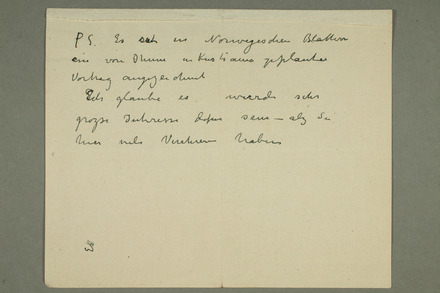 P.S. Es in Norwegischen Blattern
ein von Ihnen in Kristiania geplanter
Vortrag angezeichnet
Ich glaube es wurde sehr
grosse Interesse dafur sein – als Sie
hier viele Verehrer haben